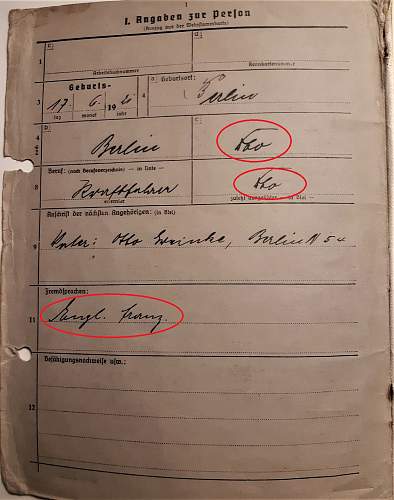 1
I. Angaben zur Person
(Auszug aus der Wehrstammkarte)
1
Arbeitsbuchnummer
Kennkartennummer
Geburts-
Geburtsort:
3
17. 6. 19
Berlin
tag monat jahr
Berlin
Beruf: (nach Berufsverzeichnis) — in Tinte —
8
Kraftfahrer
dto
erlernter
zuletzt ausgeübter — in Blei —
Anschrift der nächsten Angehörigen: (in Blei)
9
Vater: Otto Berlin N 54
Fremdsprachen:
11
Engl. Franz.
Befähigungsnachweise usw.:
12